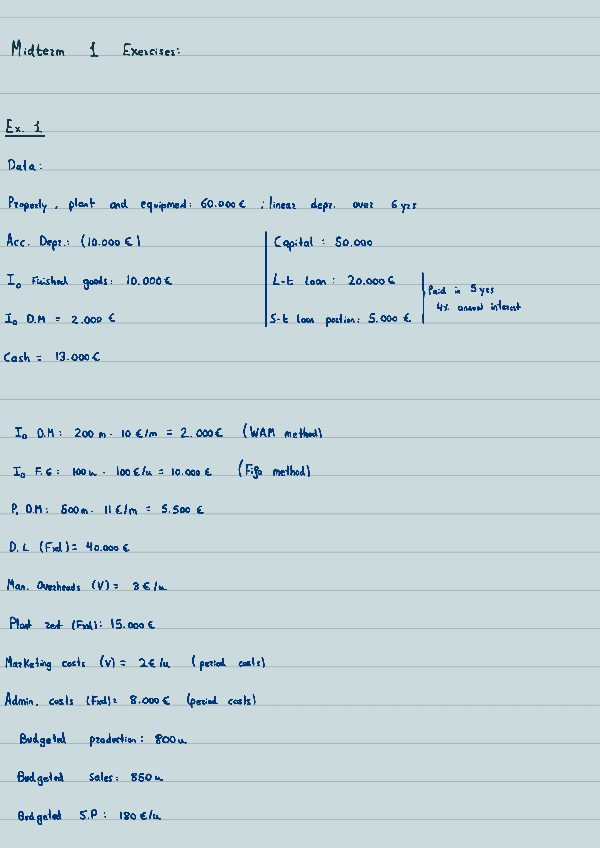 Midterm 1 Exercises:
Ex. 1
Data:
Property, plant and equipmed: 60.000 € ; linear depr. over 6 yrs
Acc. Depr.: (10.000 €)
Capital : 50.000
I₀ Finished goods: 10.000 €
L-t loan : 20.000 €
Paid in 5 yrs
4% annual interest
I₀ D.M = 2.000 €
S-t loan portion: 5.000 €
Cash = 13.000 €
I₀ D.M: 200 m · 10 €/m = 2.000 € (WAM method)
I₀ F.G: 100 u · 100 €/u = 10.000 € (Fifo method)
P. D.M: 500 m · 11 €/m = 5.500 €
D.L (Fxd) = 40.000 €
Man. Overheads (V) = 3 €/u
Plant rent (Fxd): 15.000 €
Marketing costs (V) = 2 €/u (period costs)
Admin. costs (Fxd)= 8.000 € (period costs)
Budgeted production: 800 u
Budgeted Sales: 850 u
Budgeted S.P : 180 €/u